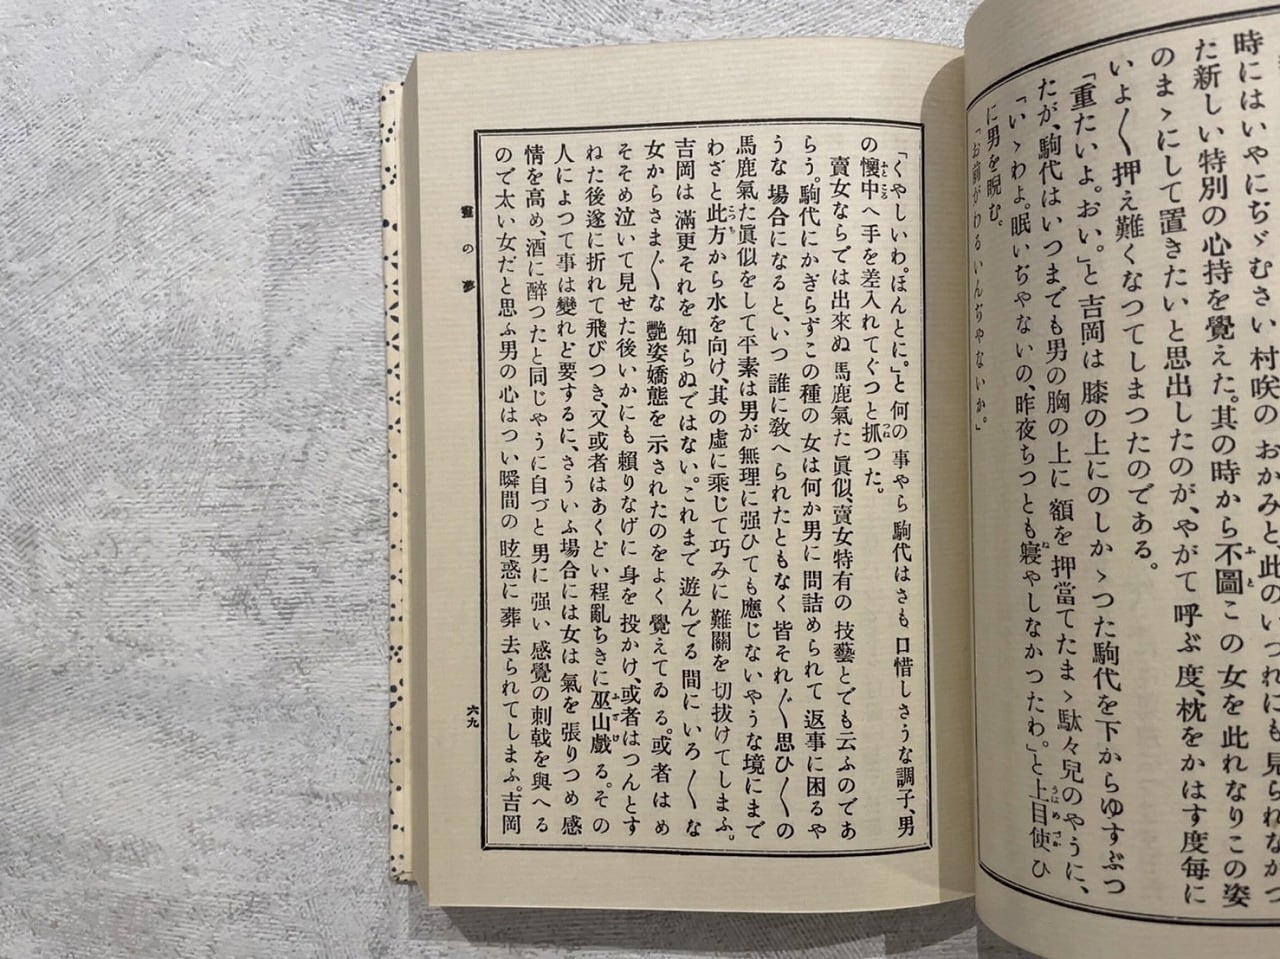 時にはいやにぢゞむさい村咲のおかみと、此のいつれにも見られなかつ
た新しい特別の心持を覺えた。其の時から不圖この女を此れなりこの姿
のまゝにして置きたいと思出したのが、やがて呼ぶ度、枕をかはす度毎に
いよ〱押え難くなつてしまつたのである。
「重たいよ。おい。」と吉岡は膝の上にのしかゝつた駒代を下からゆすぶつ
たが、駒代はいつまでも男の胸の上に額を押當てたまゝ駄々兒のやうに、
「いゝわよ。眠いぢやないの、昨夜ちつとも寢やしなかつたわ。」と上目使ひ
に男を睨む。
「お前がわるいんぢやないか。」
「くやしいわ。ほんとに。」と何の事やら駒代はさも口惜しさうな調子、男
の懷中へ手を差入れてぐつと抓つた。
賣女ならでは出來ぬ馬鹿氣た眞似、賣女特有の技藝とでも云ふのであ
らう。駒代にかぎらずこの種の女は何か男に問詰められて返事に困るや
うな場合になると、いつ誰に敎へられたともなく皆それ〲思ひ〱の
馬鹿氣た眞似をして平素は男が無理に强ひても應じないやうな境にまで
わざと此方から水を向け、其の虛に乘じて巧みに難關を切拔けてしまふ。
吉岡は滿更それを知らぬではない。これまで遊んでる間にいろ〱な
女からさま〲な艷姿嬌態を示されたのをよく覺えてゐる。或者はめ
そそめ泣いて見せた後いかにも賴りなげに身を投かけ、或者はつんとす
ねた後遂に折れて飛びつき、又或者はあくどい程亂ちきに巫山戲る。その
人によつて事は變れど要するに、さういふ場合には女は氣を張りつめ感
情を高め、酒に醉つたと同じやうに自づと男に强い感覺の刺戟を與へる
ので太い女だと思ふ男の心はつい瞬間の眩惑に葬去られてしまふ。吉岡
晝の夢
六九